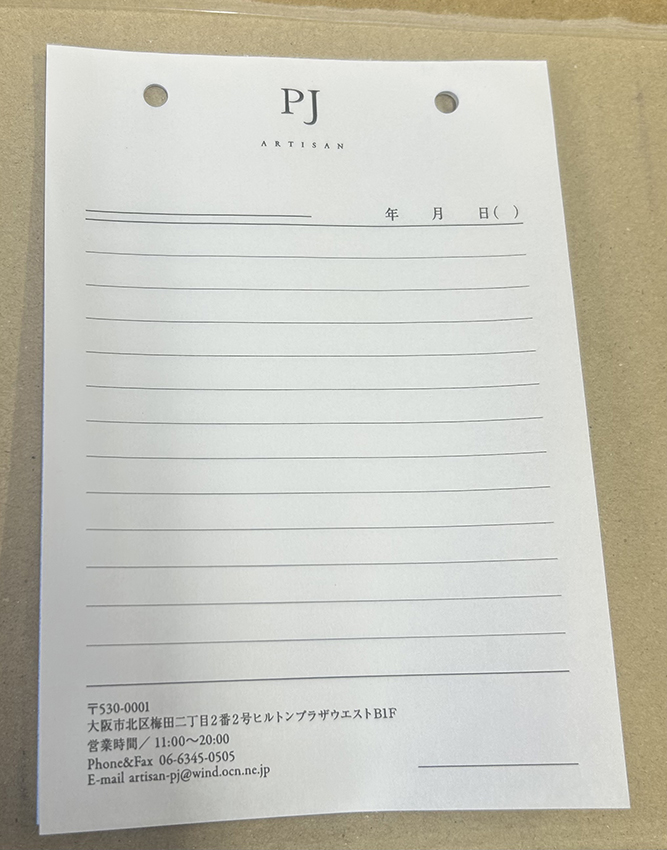 PJ
ARTISAN
年 月 日( )
〒530-0001
大阪市北区梅田二丁目2番2号ヒルトンプラザウエストB1F
営業時間／ 11:00〜20:00
Phone&Fax 06-6345-0505
E-mail artisan-pj@wind.ocn.ne.jp